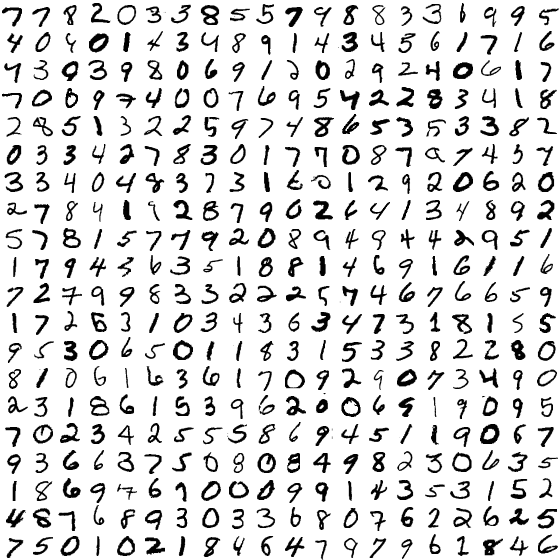 7 7 8 2 0 3 3 8 5 5 7 9 8 8 3 3 6 9 9 5
4 0 4 0 1 4 3 4 8 9 1 4 3 4 5 6 1 7 1 6
4 3 0 3 9 8 0 6 9 1 2 0 2 9 2 4 0 6 1 7
7 0 8 9 7 4 0 0 7 6 9 5 4 2 2 8 3 4 1 8
2 8 5 1 3 2 2 5 9 7 4 8 6 5 3 5 3 3 8 2
0 3 3 4 2 7 8 3 0 1 7 7 0 8 7 9 7 4 5 7
3 3 4 0 4 8 3 7 3 1 6 0 1 2 9 2 0 6 2 0
2 7 8 4 1 9 2 8 7 9 0 2 6 4 1 3 4 8 9 2
5 7 8 1 5 7 7 9 2 0 8 9 4 9 4 4 2 9 5 1
1 7 9 4 3 6 3 5 1 8 8 1 4 6 9 1 6 1 1 6
7 2 7 9 9 8 3 3 2 2 2 5 7 4 6 7 6 6 5 9
1 7 2 6 3 1 0 3 4 3 6 3 4 7 3 1 8 1 5 5
9 5 3 0 6 5 0 1 1 8 3 1 5 3 3 8 2 2 8 0
8 1 0 6 1 6 3 6 1 7 0 9 2 9 0 7 3 4 9 0
2 3 1 8 6 1 5 3 9 6 2 0 0 6 5 1 9 0 9 5
7 0 2 3 4 2 5 5 5 8 6 9 4 5 1 1 9 0 6 7
9 3 6 6 3 7 5 0 8 0 8 4 9 8 2 3 0 6 3 5
1 8 6 9 7 6 9 0 0 0 9 9 1 4 3 5 3 1 5 2
4 8 7 6 8 9 3 0 3 3 6 8 0 7 6 2 2 6 2 5
7 5 0 1 0 2 1 8 4 6 4 7 9 7 9 6 2 8 4 6